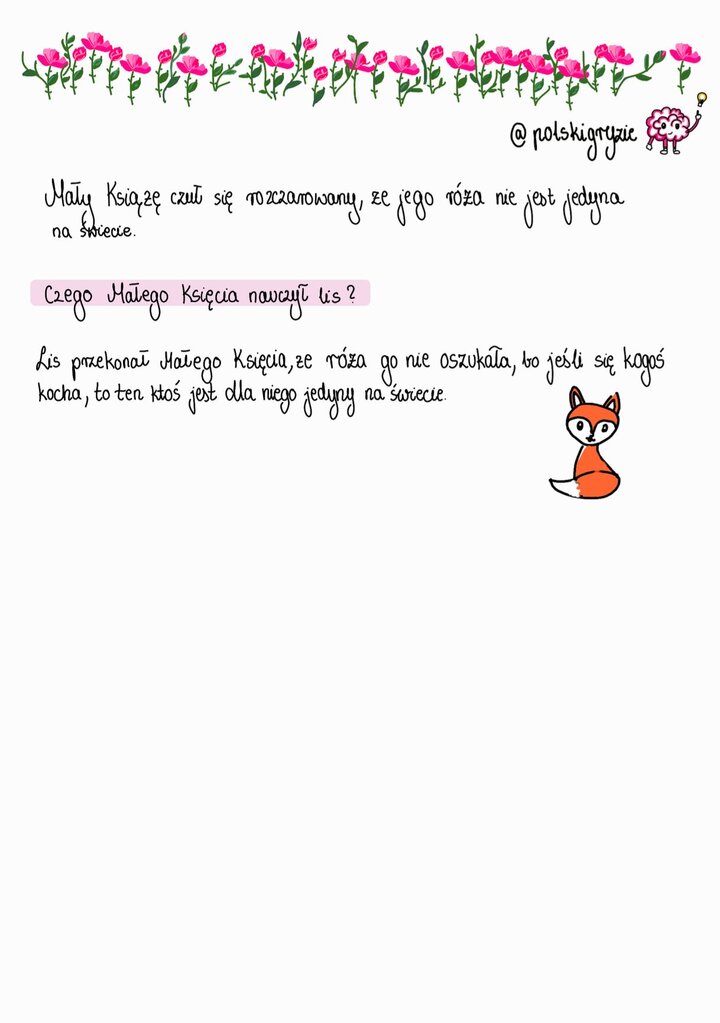 @polskigryzie
Mały Książę czuł się rozczarowany, że jego róża nie jest jedyna
na świecie.
Czego Małego Księcia nauczył lis?
Lis przekonał Małego Księcia, że róża go nie oszukała, bo jeśli się kogoś
kocha, to ten ktoś jest dla niego jedyny na świecie.